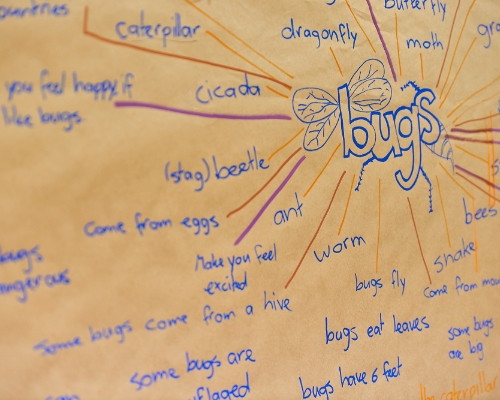 countries
caterpillar
dragonfly
butterfly
moth
you feel happy if
like bugs
cicada
bugs
(stag) beetle
ant
bees
come from eggs
worm
snake
make you feel
excited
bugs fly
come from
some bugs come from a hive
bugs eat leaves
some bugs
are big
some bugs are
bugs have 6 feet
caterpillar